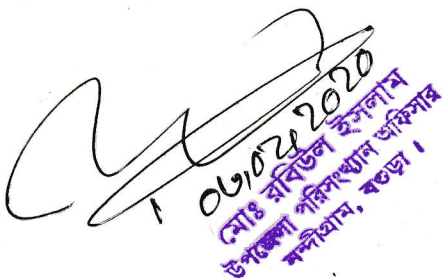 ০৬.০২.২০২০
মোঃ রবিউল ইসলাম
উপজেলা পরিসংখ্যান অফিসার
নন্দীগ্রাম, বগুড়া।